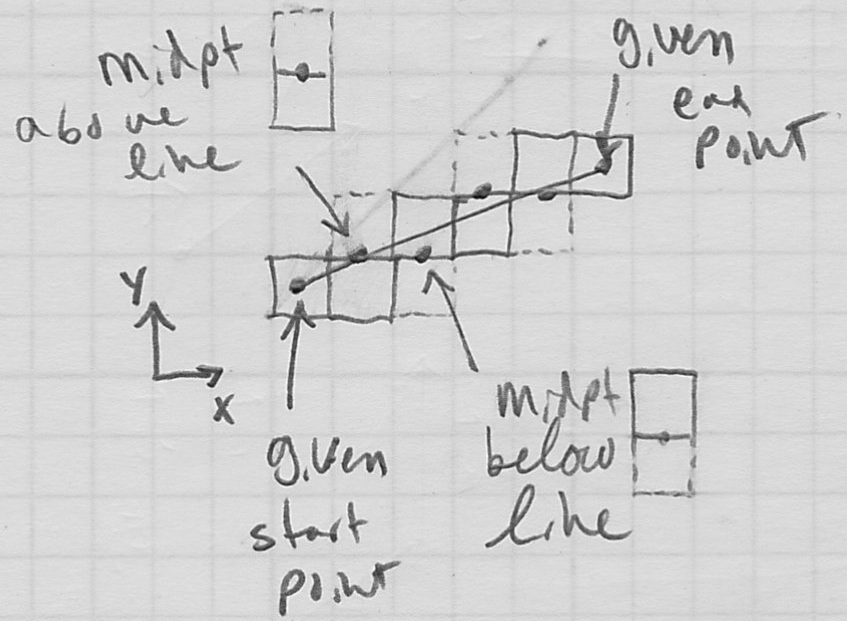 midpt
above
line
given
end
point
Y
X
given
start
point
midpt
below
line